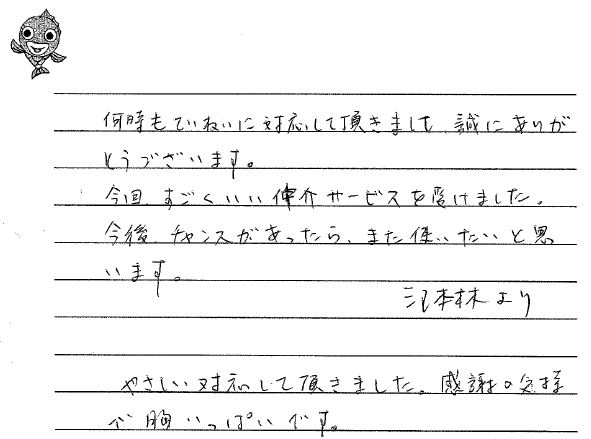 何時もていねいに対応して頂きまして 誠にありが
とうございます。
今回、すごくいい仲介サービスを受けました。
今後、チャンスがあったら、また使いたいと思
います。
より
やさしい対応して頂きました。感謝の気持
で胸いっぱいです。